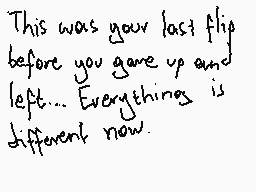 This was your last flip
before you gave up and
left... Everything is
different now.